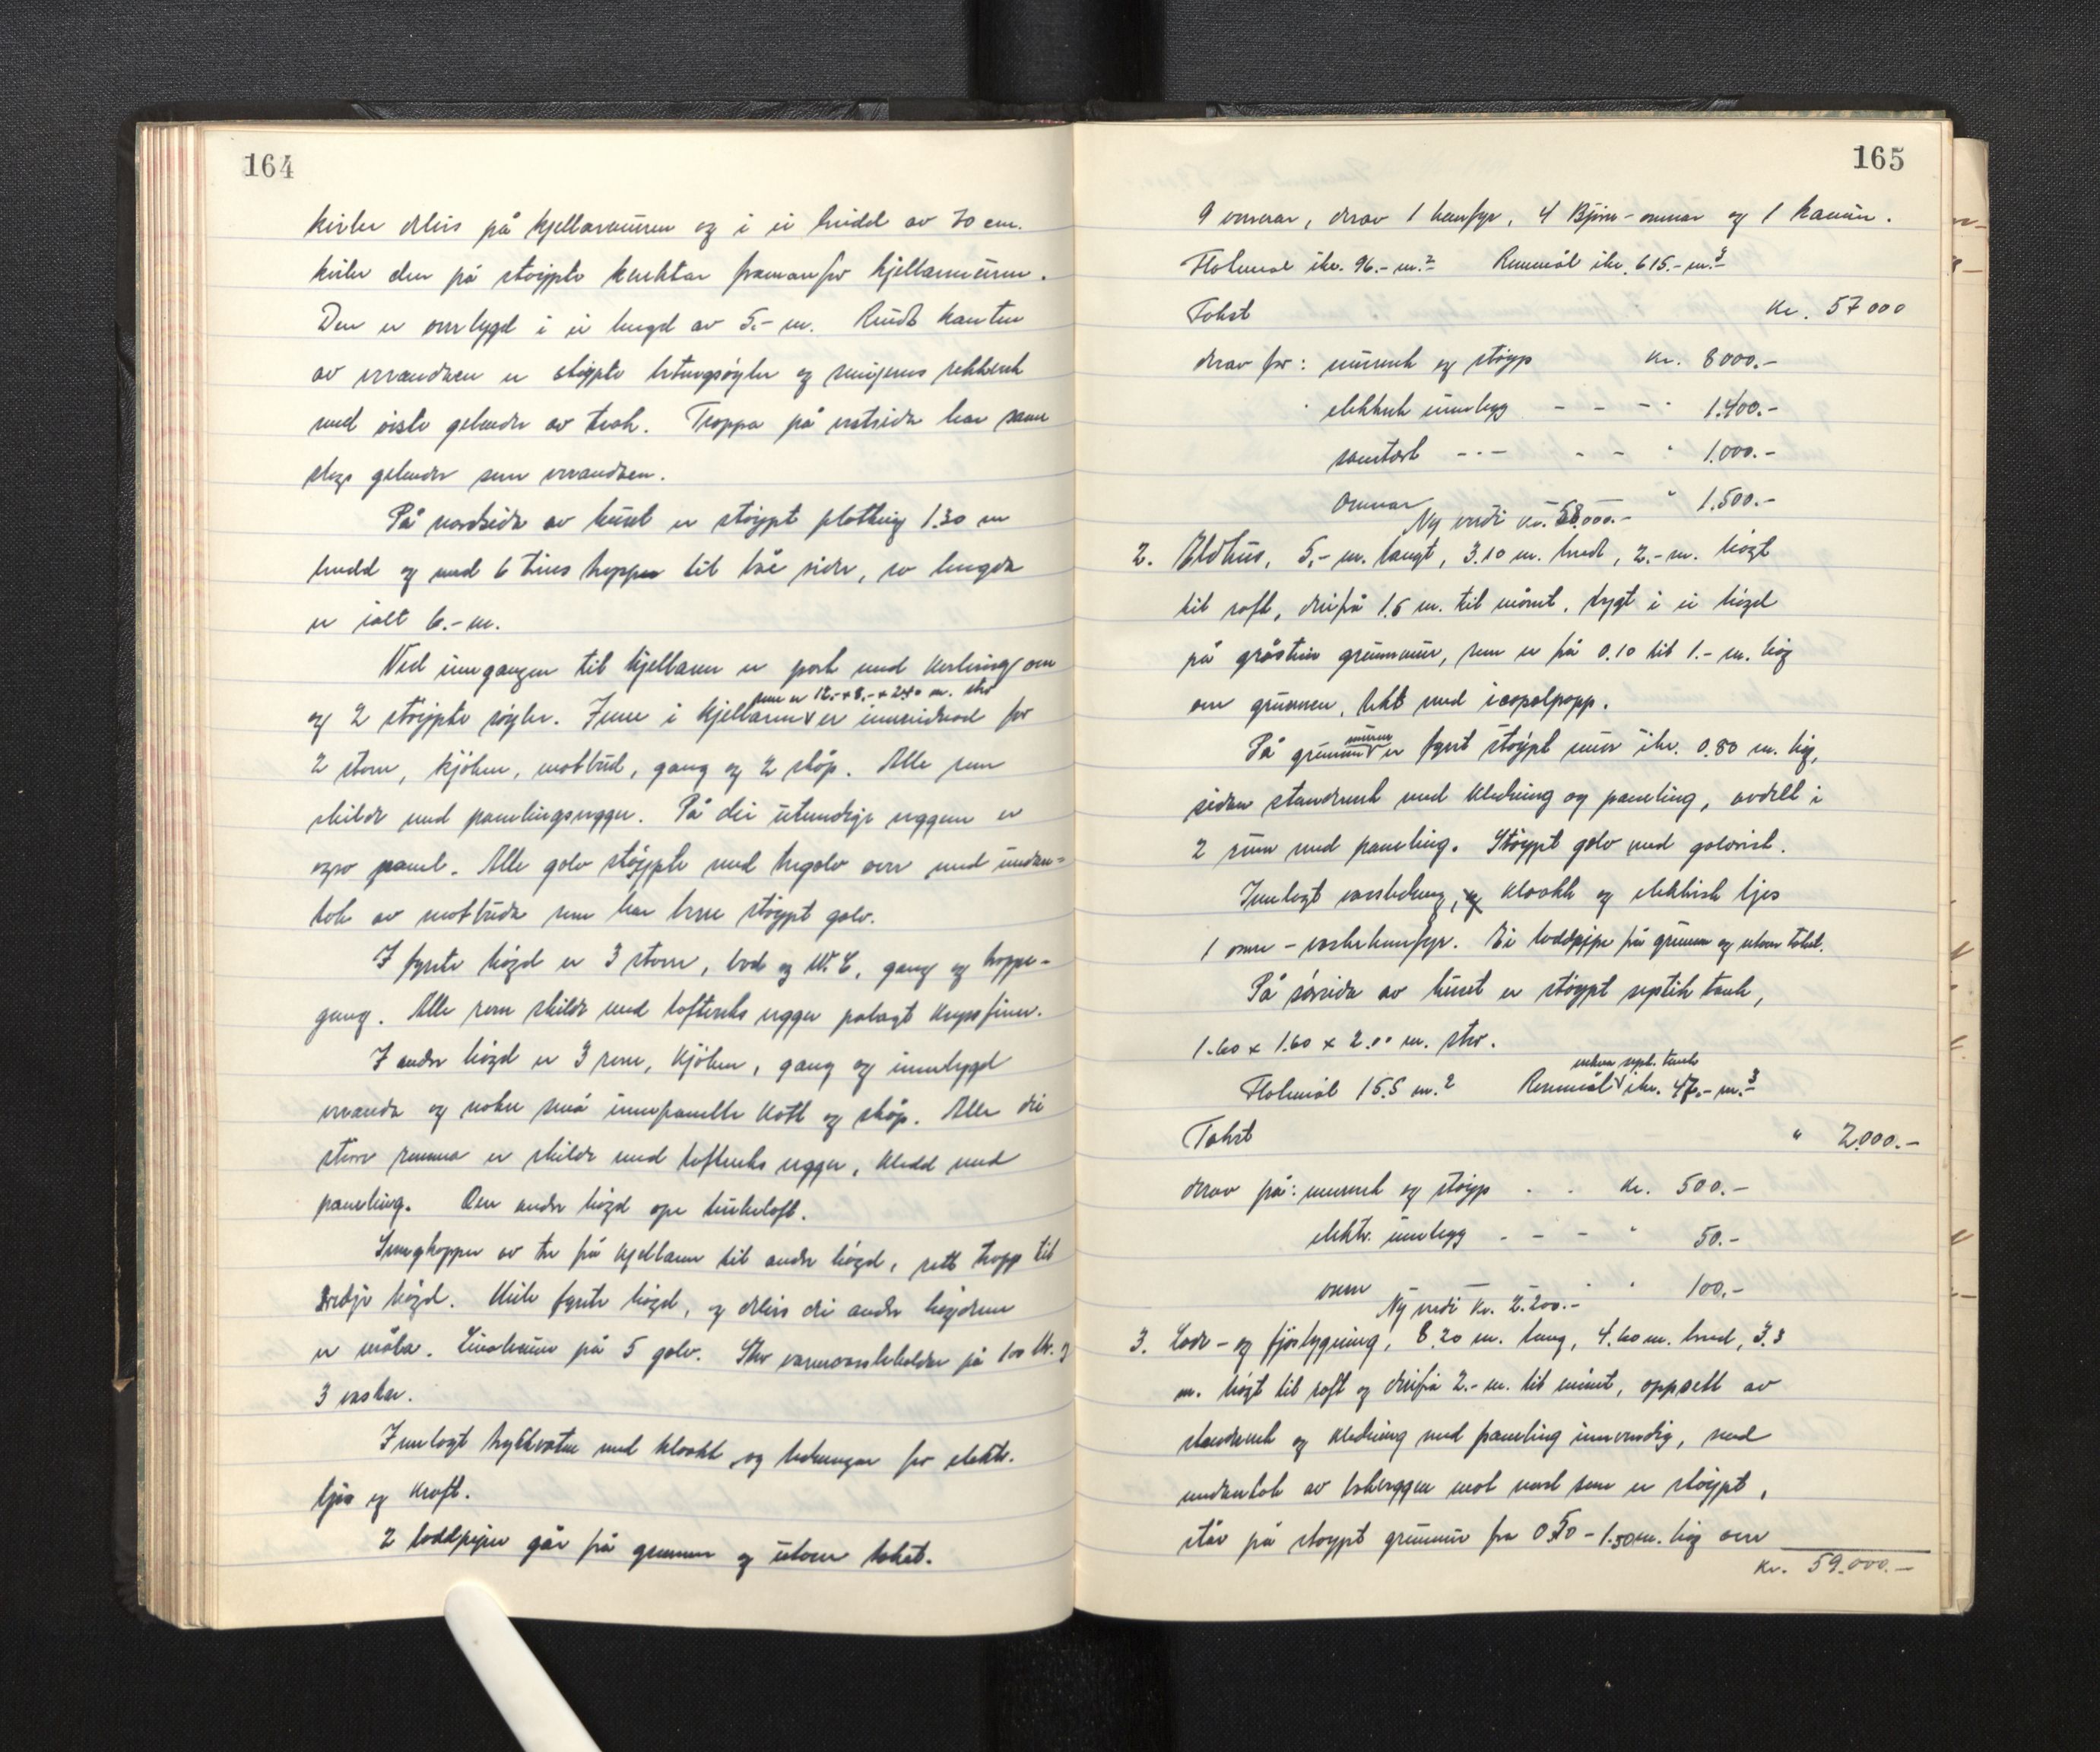 164
kviler delvis på kjellarmuren og i ei breidd av 70 cm.
kviler den på støypte knektar framanfor kjellarmuren.
Den er ombygd i ei lengd av 5.- m. Rundt kanten
av verandaen er støypte betongsøyler og smijerns rekkverk
med øvste gelender av teak. Troppa på vestsida har same
slags gelender som verandaen.
På nordsida av huset er støypt plotting 1.30 m
breidd og med 6 trins troppar til båe sider, so lengda
er ialt 6.- m.
Ved inngangen til kjellaren er port med kvelving om
som er 12.- x 8.- x 2.40 m. stor
og 2 støypte søyler. Inne i kjellaren er innreidnad for
2 stover, kjøken, matbud, gang og 2 skåp. Alle rom
skilde med panelingsvegger. På dei utvendige veggene er
ogso panel. Alle golv støypte med tregolv over med undan-
tak av matbuda som har berre støypt golv.
I fyrste høgd er 3 stover, bod og W.C, gang og troppe-
gang. Alle rom skilde med lofteverks vegger pålagt kryssfiner.
I andre høgd er 3 rom, kjøken, gang og innebygd
veranda og nokre små innepanelte kott og skåp. Alle dei
større romma er skilde med lofteverks vegger, kledd med
paneling. Over andre høgd ope turkeloft.
Svingtropper av tre frå kjellaren til andre høgd, rett tropp til
tredje høgd. Heile fyrste høgd, og delvis dei andre høgdene
er måla. Linoleum på 5 golv. Stor varmvassbeholdar på 100 ltr. og
3 vaskar.
Innlagt trykkvatn med kloakk og ledningar for elektr.
ljos og kraft.
2 loddpiper går frå grunnen og utover taket.
165
9 omnar, derav 1 kamfyr, 4 Bjørn-omnar og 1 kamin.
Flatemål ikr. 96.- m.² Rommål ikr. 615.- m.³
Takst kr. 57 000
derav for: murverk og støyp kr. 8000.-
elektrisk innlegg - - - " 1.400.-
sanitært - - - - - " 1.000.-
Omnar " 1.500.-
Ny verdi kr. 58.000.-
2. Eldhus, 5,- m. langt, 3.10 m. bredt, 2.- m. høgt
til raft, derifrå 1.5 m. til mønet, bygt i ei høgd
på gråstein grunnmur, som er frå 0.10 til 1.- m. høg
over grunnen, tekt med icopalpapp.
muren
På grunnen er fyrst støypt mur ikr. 0.80 m. høg,
sidan standverk med kledning og paneling, avdelt i
2 rum med paneling. Støypt golv med golvrist.
Innlagt vassledning, kloakk og elektrisk ljos
1 omn - vaskekamfyr. Ei loddpipe frå grunnen og utover taket.
På sørsida av huset er støypt septik tank,
1.60 x 1.60 x 2.00 m. stor.
utanom sept. tank
Flatemål 15.5 m.² Rommål ikr. 47.- m.³
Takst " 2.000.-
derav på: murverk og støyp . . kr. 500.-
elektr. innlegg - - - " 50.-
omn " 100.-
Ny verdi kr. 2.200.-
3. Løde- og fjøsbygning, 8.20 m. lang, 4.60 m. breid, 3.3
m. høgt til raft og derifrå 2.- m. til mønet, oppsett av
standverk og kledning med paneling innvendig, med
undantak av bakveggen mot nord som er støypt,
står på støypt grunnmur fra 0.50 - 1.50 m. høg over
kr. 59.000.-